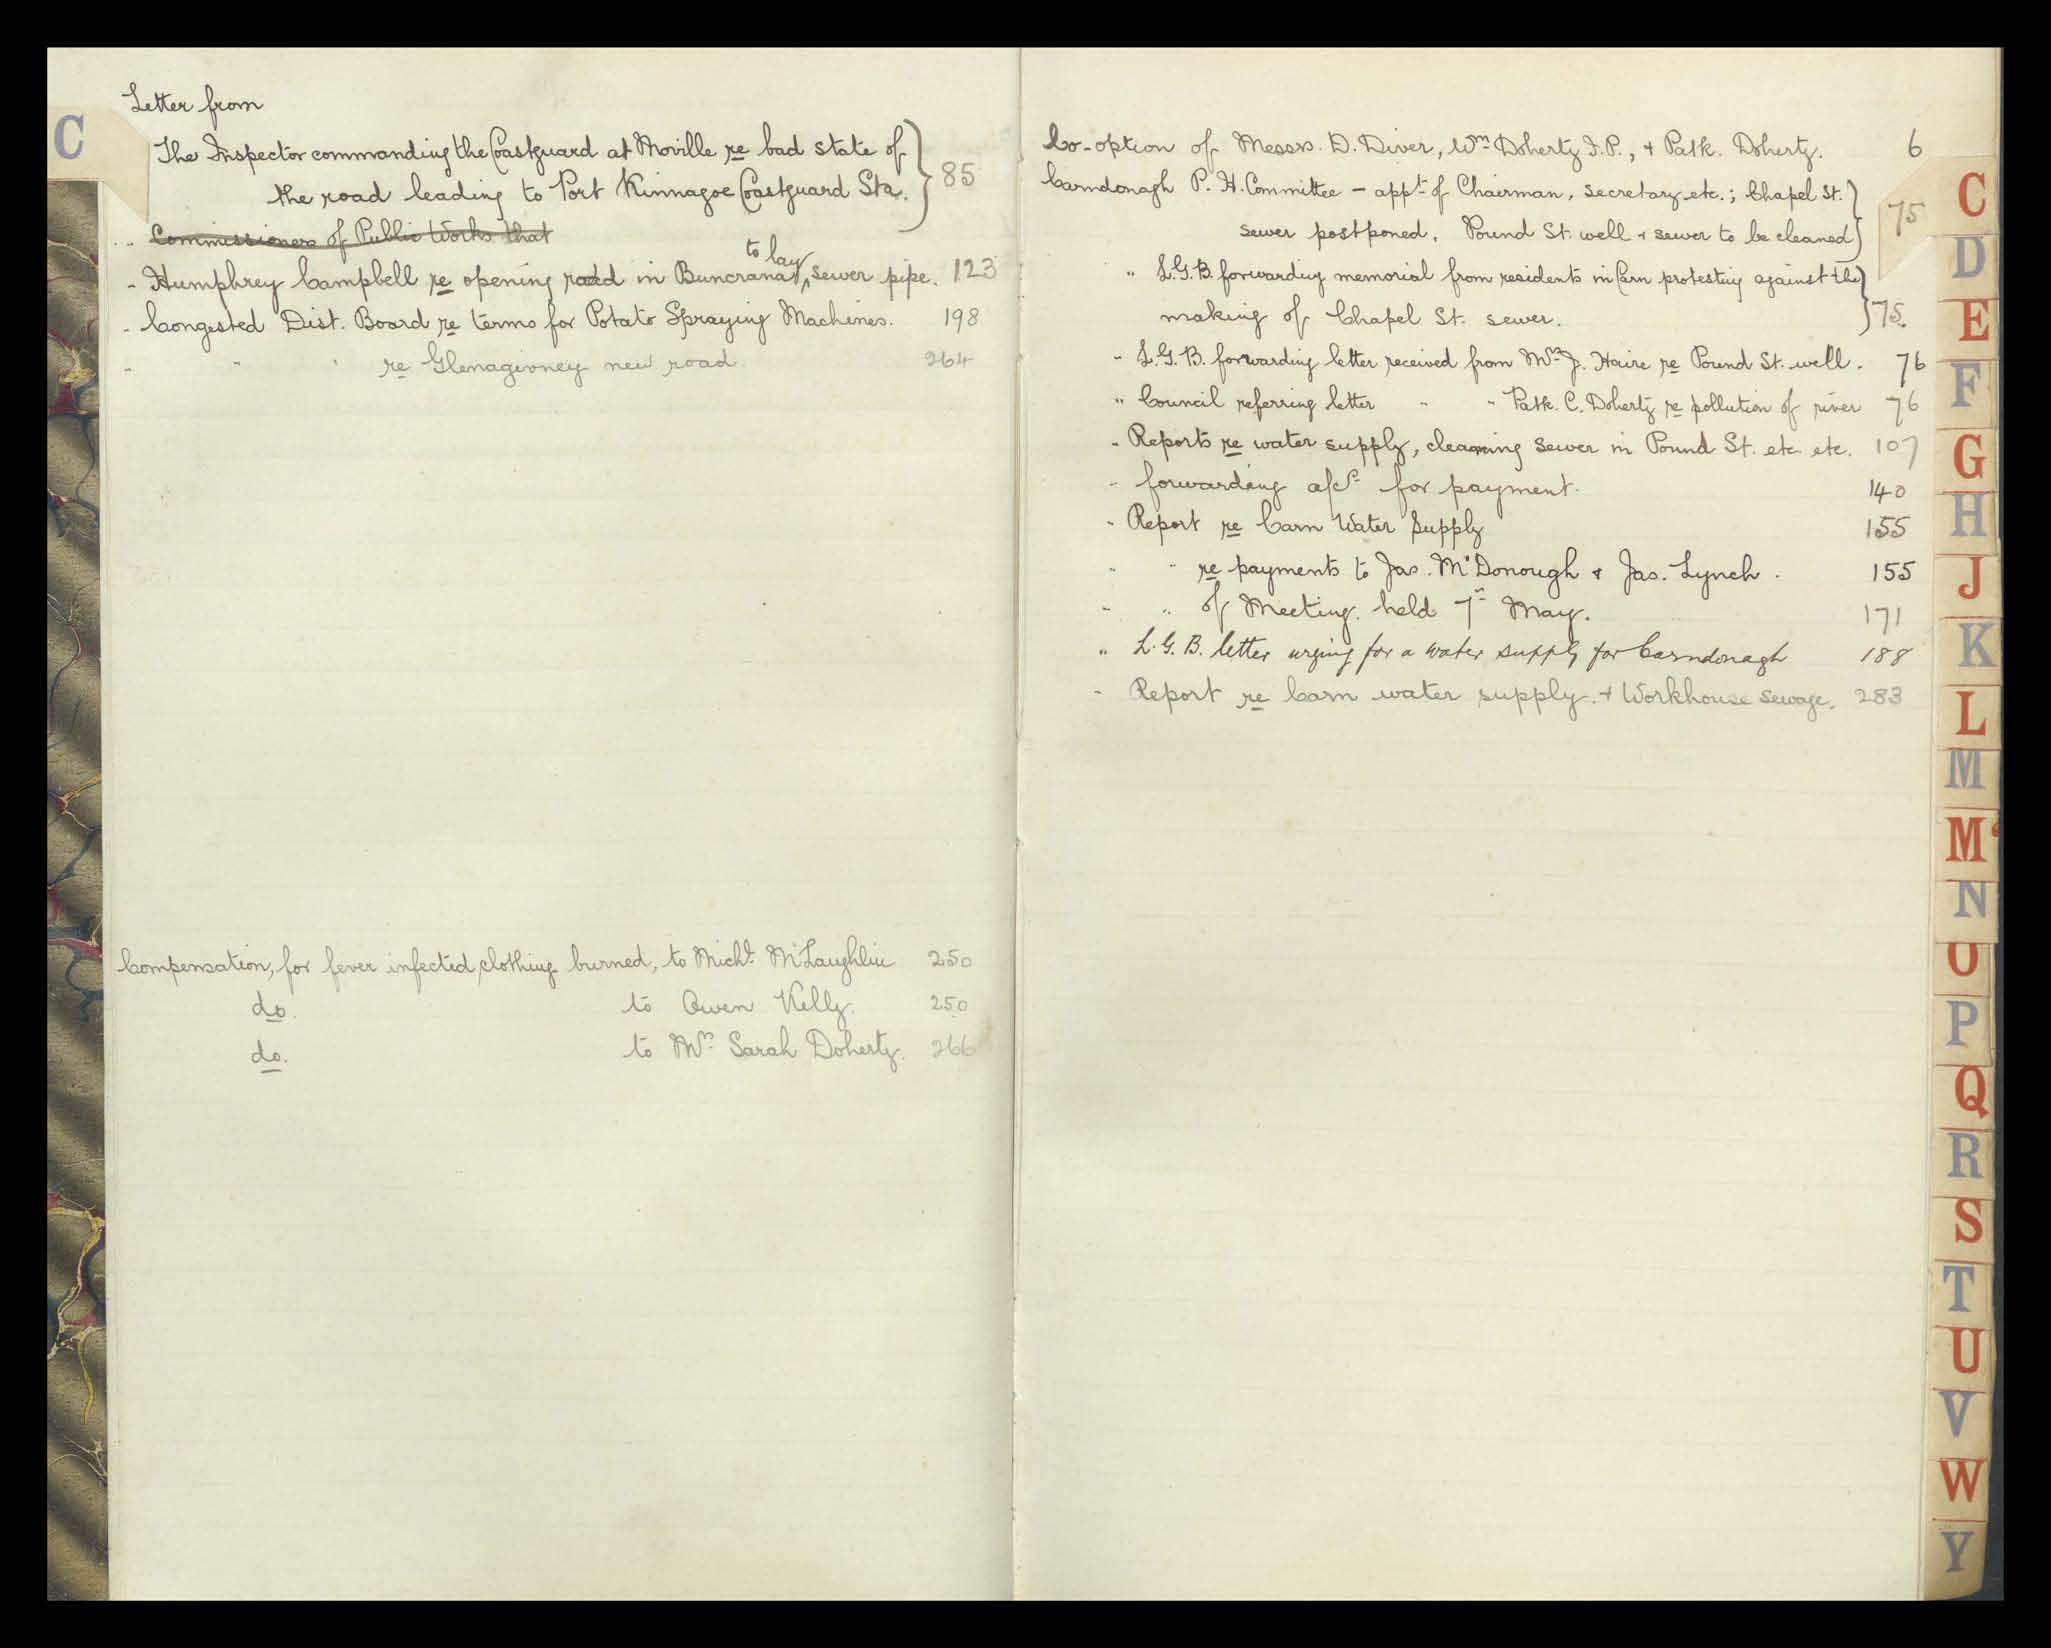 C
Letter from
The Inspector commanding the Coastguard at Moville re bad state of
the road leading to Port Kinnagoe Coastguard Sta. } 85
" Commissioners of Public Works that
to lay
" Humphrey Campbell re opening road in Buncrana ^ sewer pipe. 123
" Congested Dist. Board re terms for Potato Spraying Machines. 198
" " " re Glenagivney new road 264
Compensation, for fever infected clothing burned, to Michl. McLaughlin 250
do. to Owen Kelly. 250
do. to Mrs Sarah Doherty. 266
Co-option of Messrs. D. Diver, Wm Doherty J.P., & Patk. Doherty. 6
Carndonagh P. H. Committee - appt. of Chairman, secretary etc.; Chapel St.
sewer postponed. Pound St. well & sewer to be cleaned } 75
" L.G.B. forwarding memorial from residents in Carn protesting against the
making of Chapel St. sewer. } 75.
" L.G.B. forwarding letter received from Mrs J. Haire re Pound St. well. 76
" Council referring letter " " Patk. C. Doherty re pollution of river 76
" Reports re water supply, cleaning sewer in Pound St. etc etc. 107
" forwarding a/cs for payment. 140
" Report re Carn Water Supply 155
" " re payments to Jas. McDonough & Jas. Lynch. 155
" " of Meeting held 7th May. 171
" L.G.B. letter urging for a water supply for Carndonagh 188
" Report re Carn water supply. & Workhouse sewage. 283
C
D
E
F
G
H
J
K
L
M
Mc
N
O
P
Q
R
S
T
U
V
W
Y